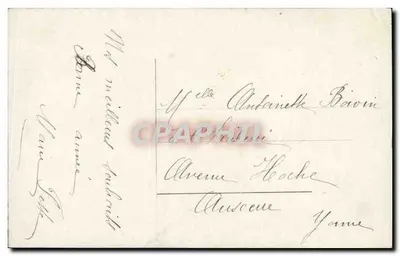 Nos meilleurs souhaits
Bonne année
Marie
Melle Antoinette Boivin
Avenue Hoche
Auxerre
Yonne
CPAPHIL